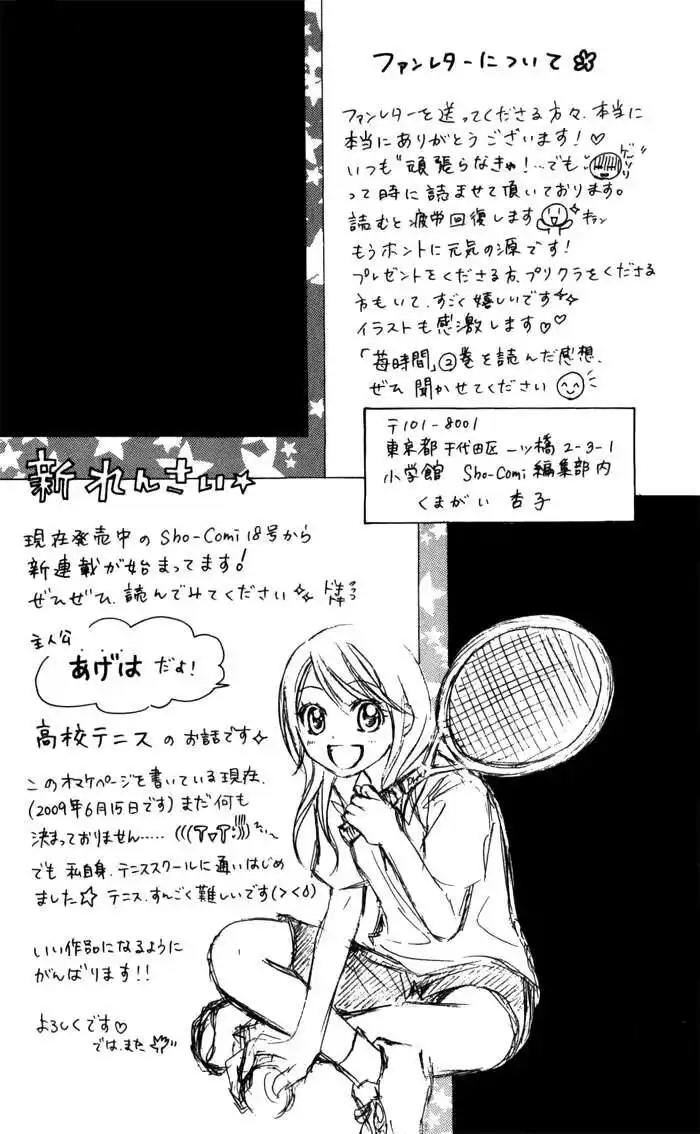 ファンレターについて
ファンレターを送ってくださる方々、本当に
本当にありがとうございます!♡
いつも"頑張らなきゃ!…でも ゲンナリ"
って時に読ませて頂いております。
読むと疲労回復します キラン
もうホントに元気の源です!
プレゼントをくださる方、プリクラをくださる
方もいて、すごく嬉しいです
イラストも感激します♡♡
「苺時間」②巻を読んだ感想、
ぜひ 聞かせてください
〒101-8001
東京都千代田区一ツ橋2-3-1
小学館 Sho-Comi編集部内
くまがい 杏子
新れんさい☆
現在発売中のSho-Comi 18号から
新連載が始まってます!
ぜひぜひ、読んでみてください☆ ドキドキ
主人公
あげは だよ!
高校テニス のお話です☆
このオマケページを書いている現在、
(2009年6月15日です)まだ何も
決まっておりません…‥
でも 私自身、テニススクールに通いはじめ
ました☆ テニス、すんごく難しいです(><δ)
いい作品になるように
がんばります!!
よろしくです♡
では、また